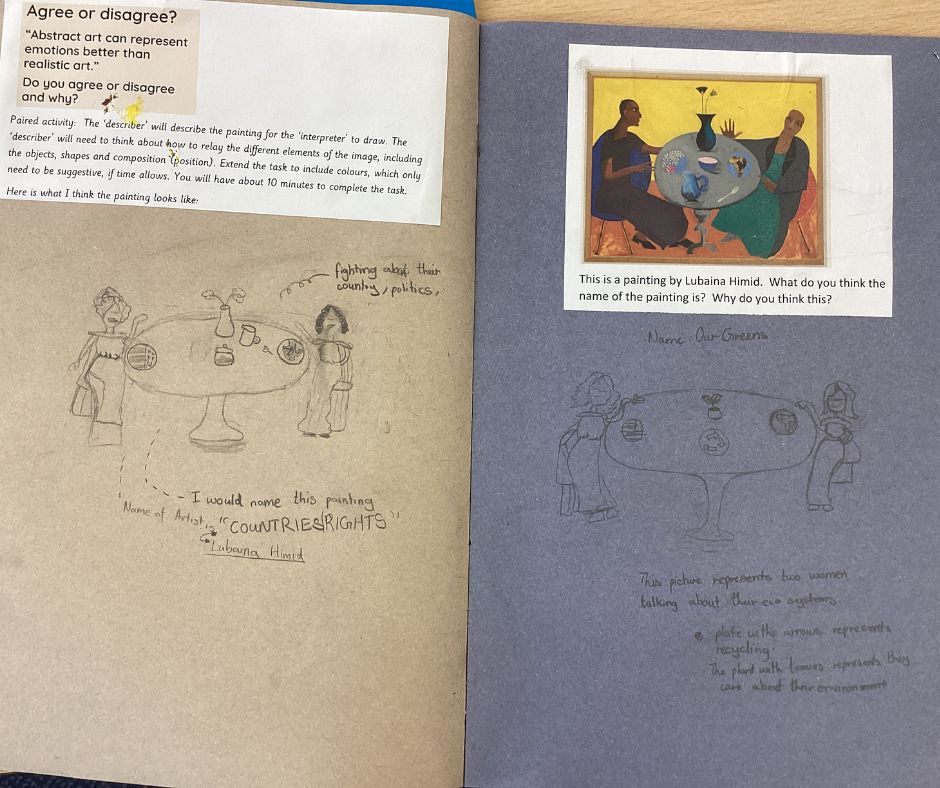 Agree or disagree?
“Abstract art can represent
emotions better than
realistic art.”
Do you agree or disagree
and why?
Paired activity: The ‘describer’ will describe the painting for the ‘interpreter’ to draw. The
‘describer’ will need to think about how to relay the different elements of the image, including
the objects, shapes and composition (position). Extend the task to include colours, which only
need to be suggestive, if time allows. You will have about 10 minutes to complete the task.
Here is what I think the painting looks like:
fighting about their
country, politics,
I would name this painting
"COUNTRIES/RIGHTS"
Name of Artist,
Lubaina Himid
This is a painting by Lubaina Himid. What do you think the
name of the painting is? Why do you think this?
Name: Our Greens
This picture represents two women
talking about their eco systems.
plate withe arrows represents
recycling.
The plant with leaves represents they
care about their environment